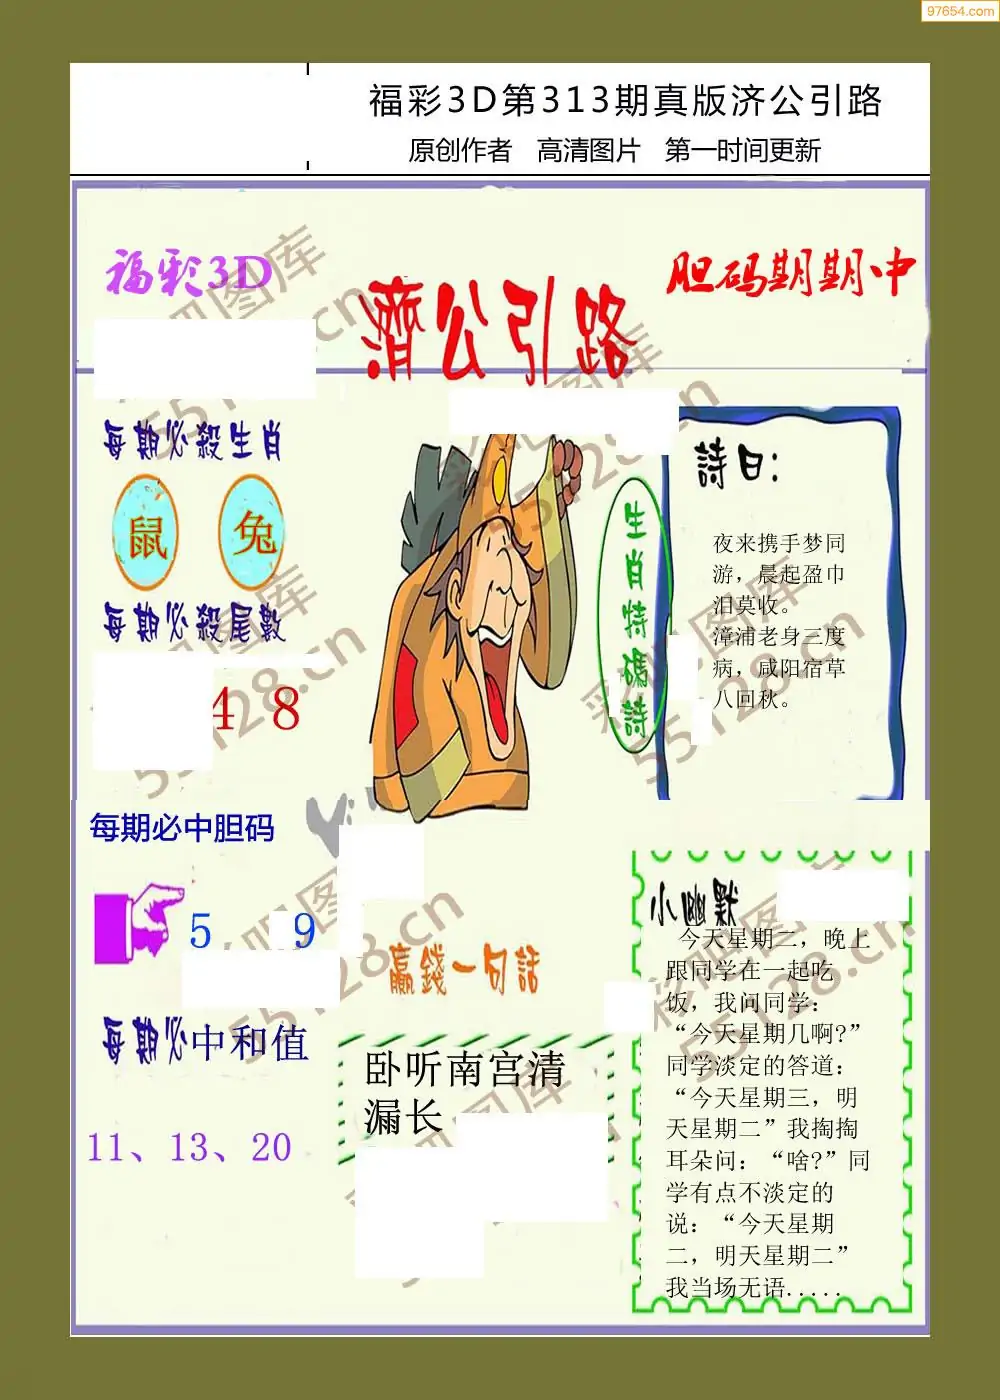 97654.com
福彩3D第313期真版济公引路
原创作者 高清图片 第一时间更新
福彩3D
胆码期期中
濟公引路
每期必殺生肖
鼠 兔
每期必殺尾數
4 8
生肖特碼詩
詩曰:
夜来携手梦同
游，晨起盈巾
泪莫收。
漳浦老身三度
病，咸阳宿草
八回秋。
每期必中胆码
5 9
每期必中和值
11、13、20
赢錢一句話
卧听南宫清
漏长
小幽默
今天星期二，晚上
跟同学在一起吃
饭，我问同学：
“今天星期几啊?”
同学淡定的答道：
“今天星期三，明
天星期二”我掏掏
耳朵问：“啥?”同
学有点不淡定的
说：“今天星期
二，明天星期二”
我当场无语.....
彩吧图库
55128.cn